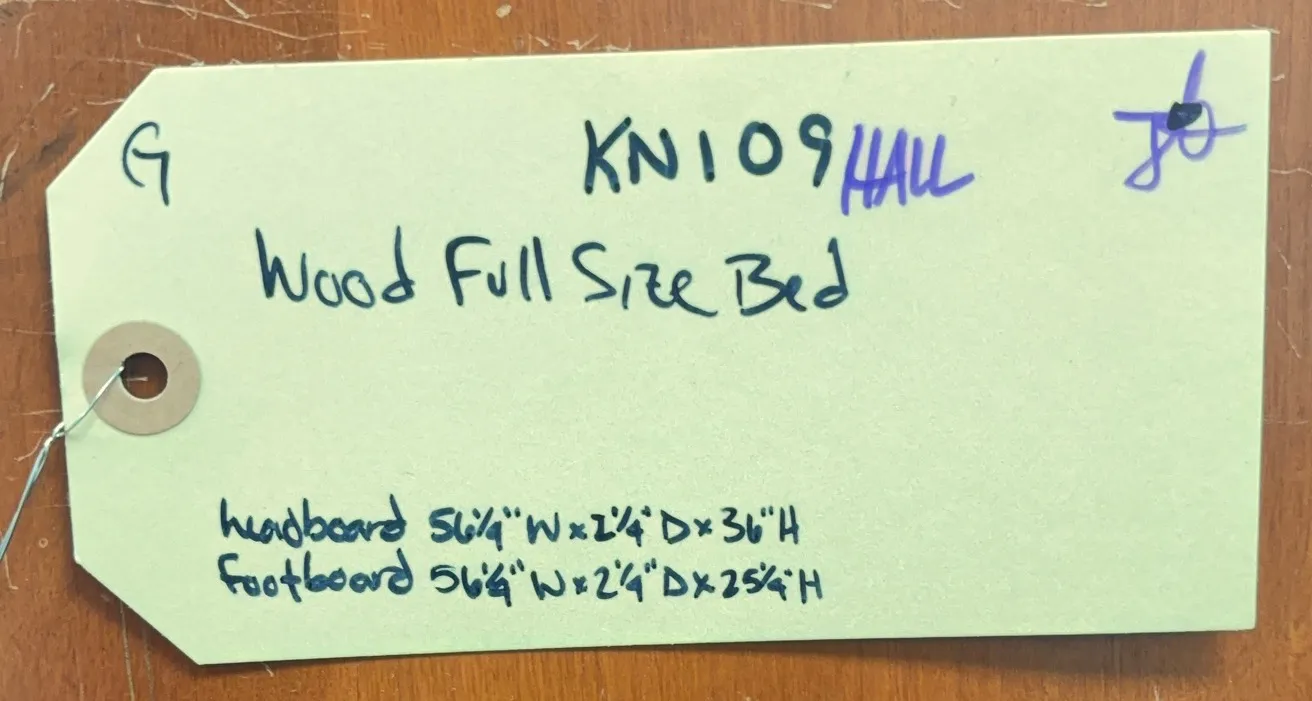 G
KN109 HALL
Wood Full Size Bed
headboard 56¼" W x 2¼" D x 36" H
footboard 56¼" W x 2¼" D x 25¼" H